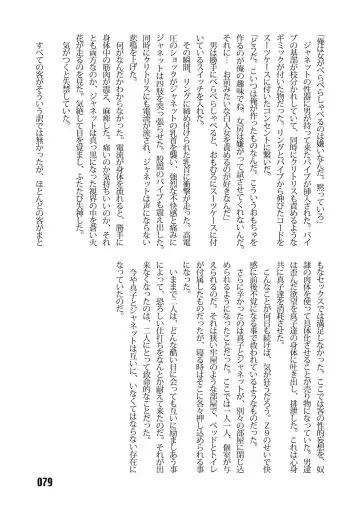 「俺は女がべらべらしゃべるのは嫌いなんだ。黙っていろ」
　ジャネットの性器に男が持って来たバイブが挿入された。バイ
ブの基部が枝分かれしていて、同時にクリトリスも責めるような
ギミックが付いた物だった。リングとバイブから伸びたコードを
スーツケースに付いたコンセントに繋いだ。
「どうだ。こいつは俺が作ったものなんだ。こういうおもちゃを
作るのが俺の趣味でね。女房は嫌がって試させてくれないんだ。
それに…お前みたいな白人女を責めるのが好きなんだ」
　男は勝手にべらべらしゃべると、おもむろにスーツケースに付
いているスイッチを入れた。
　その瞬間、リングに締め付けられた乳首に衝撃が走った。高電
圧のショックがジャネットの乳首を襲い、強烈な不快感と痛みに
ジャネットは四肢を突っ張らせた。股間のバイブも震え出した。
同時にクリトリスにも電流が流され、ジャネットは声にならない
悲鳴を上げた。
　何がなんだかわからなかった。電流が身体を流れると、勝手に
身体中の筋肉が震え、麻痺した。痛いのか気持ちいいのか、それ
とも両方なのか、ジャネットは真っ黒になった視界の中を蒼い火
花が走るのを見た。気絶して目を覚まし、ふたたび失神した。
　気がつくと失禁していた。

　すべての客がそういう訳では無かったが、ほとんどの客がまと
もなセックスでは満足しなかった。ここでは客の性的妄想を、奴
隷の肉体を使って具体化させることが売り物になっていた。男達
は歪んだ欲望を真子達の身体に吐き出し、排泄した。これは心身
共に真子達を消耗させた。
　こんなことが何日も続けば、気が狂うだろう。Ｚ９のせいで快
感に前後不覚になる事で救われているようなものだった。
　さらに辛かったのは真子とジャネットが、別々の部屋に閉じ込
められるようになったことだった。ここでは一人一人、個室が与
えられるのだ。それは狭い牢屋のような部屋で、ベッドとトイレ
が付属したものだったが、寝る時はそこに各々押し込められる事
になった。
　いままで二人は、どんな酷い目に会っても互いに励ましあう事
によって、恐ろしい仕打ちをなんとか耐えて来たのだ。それが出
来なくなったのは、二人にとって致命的なことだった。
　今や真子とジャネットは互いに、いなくてはならない存在に
なっていたのだ。
079